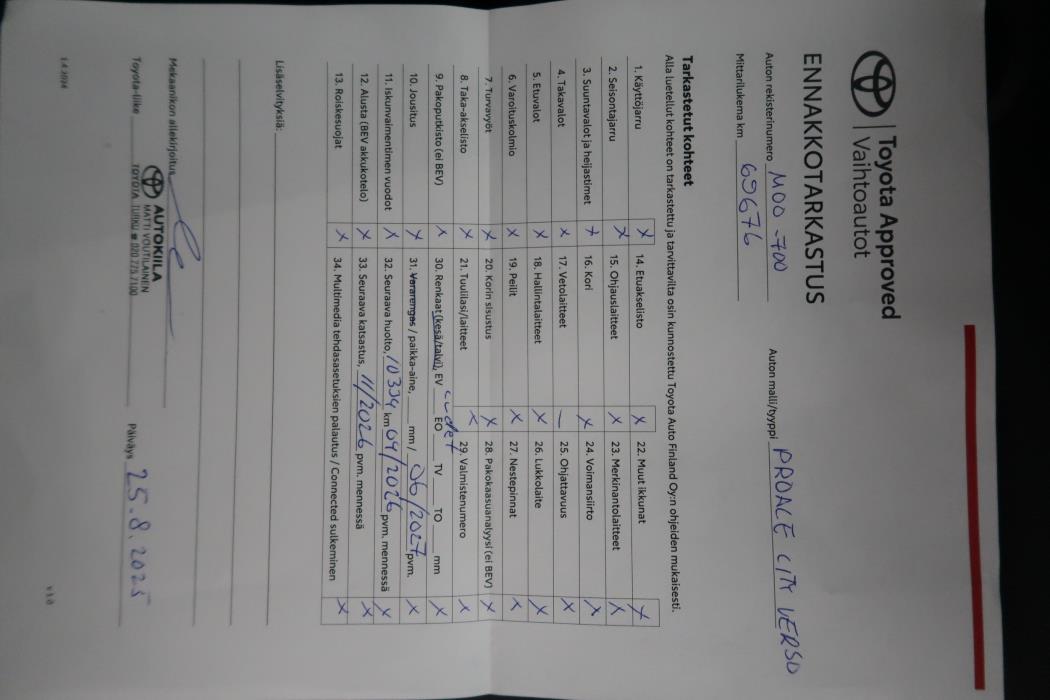 Toyota Approved
Vaihtoautot
ENNAKKOTARKASTUS
Auton rekisterinumero MOO-700 Auton malli/tyyppi PROACE CITY VERSO
Mittarilukema km 69676
Tarkastetut kohteet
Alla luetellut kohteet on tarkastettu ja tarvittavilta osin kunnostettu Toyota Auto Finland Oy:n ohjeiden mukaisesti.
1. Käyttöjarru X 14. Etuakselisto X 22. Muut ikkunat X
2. Seisontajarru X 15. Ohjauslaitteet X 23. Merkinantolaitteet X
3. Suuntavalot ja heijastimet X 16. Kori X 24. Voimansiirto X
4. Takavalot X 17. Vetolaitteet — 25. Ohjattavuus X
5. Etuvalot X 18. Hallintalaitteet X 26. Lukkolaite X
6. Varoituskolmio X 19. Peilit X 27. Nestepinnat X
7. Turvavyöt X 20. Korin sisustus X 28. Pakokaasuanalyysi (ei BEV) X
8. Taka-akselisto X 21. Tuulilasi/laitteet X 29. Valmistenumero X
9. Pakoputkisto (ei BEV) X 30. Renkaat (kesä/talvi), EV uudet EO TV TO mm X
10. Jousitus X 31. Vararengas / paikka-aine, mm / 06/2027 pvm. X
11. Iskunvaimentimen vuodot X 32. Seuraava huolto, 10334 km 04/2026 pvm. mennessä X
12. Alusta (BEV akkukotelo) X 33. Seuraava katsastus, 11/2026 pvm. mennessä X
13. Roiskesuojat X 34. Multimedia tehdasasetuksien palautus / Connected sulkeminen X
Lisäselvityksiä:
Mekaanikon allekirjoitus
AUTOKIILA
MATTI VOUTILAINEN
Toyota-liike TOYOTA TURKU ☎ 020 775 7100 Päiväys 25.8.2025
1.4.2024 v 1.0